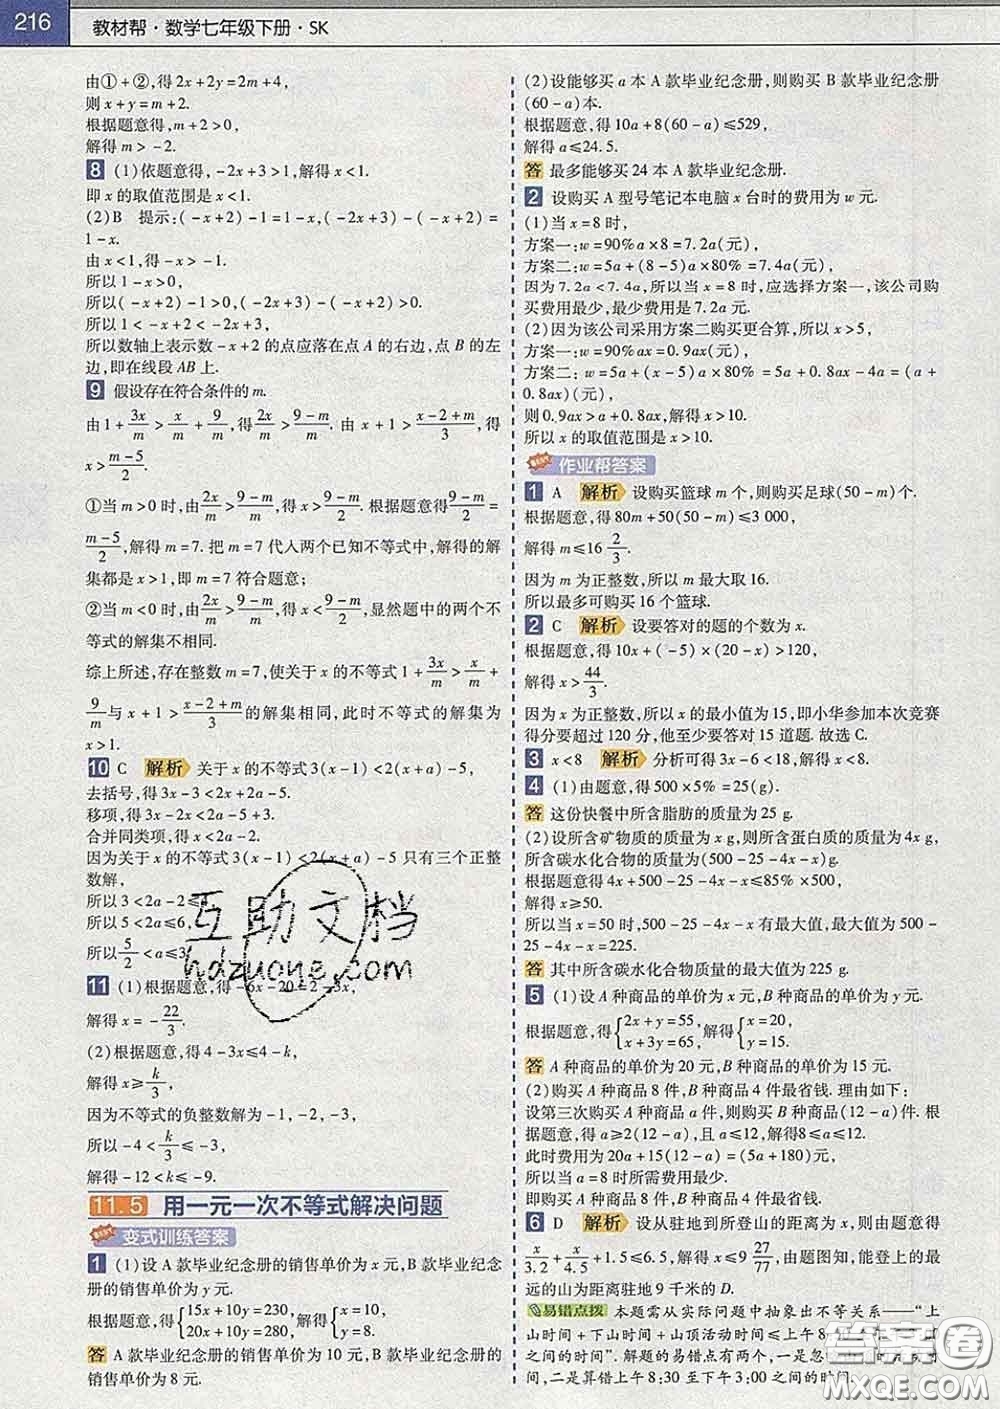 216 教材帮·数学七年级下册·SK
由①+②,得2x+2y=2m+4,
则x+y=m+2.
根据题意得,m+2>0,
解得m>-2.
8 (1)依题意得,-2x+3>1,解得x<1.
即x的取值范围是x<1.
(2)B 提示:(-x+2)-1=1-x,(-2x+3)-(-x+2)=
1-x.
由x<1,得-x>-1.
所以1-x>0,
所以(-x+2)-1>0,(-2x+3)-(-x+2)>0.
所以1<-x+2,-x+2<-2x+3,
所以数轴上表示数-x+2的点应落在点A的右边,点B的左
边,即在线段AB上.
9 假设存在符合条件的m.
由1+3x/m>x/m+9/m,得2x/m>(9-m)/m. 由x+1>(x-2+m)/3,得
x>(m-5)/2.
①当m>0时,由2x/m>(9-m)/m,得x>(9-m)/2. 根据题意得(9-m)/2=
(m-5)/2,解得m=7. 把m=7代入两个已知不等式中,解得的解
集都是x>1,即m=7符合题意;
②当m<0时,由2x/m>(9-m)/m,得x<(9-m)/2,显然题中的两个不
等式的解集不相同.
综上所述,存在整数m=7,使关于x的不等式1+3x/m>x/m+
9/m与x+1>(x-2+m)/3的解集相同,此时不等式的解集为
x>1.
10 C 解析 关于x的不等式3(x-1)<2(x+a)-5,
去括号,得3x-3<2x+2a-5.
移项,得3x-2x<2a-5+3.
合并同类项,得x<2a-2.
因为关于x的不等式3(x-1)<2(x+a)-5只有三个正整
数解,
所以3<2a-2≤
所以5<2a≤6,
所以5/2<a≤3
11 (1)根据题意,得-6x-20=2-3x,
解得x=-22/3.
(2)根据题意,得4-3x≤4-k,
解得x≥k/3,
因为不等式的负整数解为-1,-2,-3,
所以-4<k/3≤-3,
解得-12<k≤-9.
11.5 用一元一次不等式解决问题
变式训练答案
1 (1)设A款毕业纪念册的销售单价为x元,B款毕业纪念
册的销售单价为y元.
根据题意,得{15x+10y=230, 20x+10y=280,解得{x=10, y=8.
答 A款毕业纪念册的销售单价为10元,B款毕业纪念册的
销售单价为8元.
(2)设能够买a本A款毕业纪念册,则购买B款毕业纪念册
(60-a)本.
根据题意,得10a+8(60-a)≤529,
解得a≤24.5.
答 最多能够买24本A款毕业纪念册.
2 设购买A型号笔记本电脑x台时的费用为w元.
(1)当x=8时,
方案一:w=90%a×8=7.2a(元),
方案二:w=5a+(8-5)a×80%=7.4a(元),
因为7.2a<7.4a,所以当x=8时,应选择方案一,该公司购
买费用最少,最少费用是7.2a元.
(2)因为该公司采用方案二购买更合算,所以x>5,
方案一:w=90%ax=0.9ax(元),
方案二:w=5a+(x-5)a×80%=5a+0.8ax-4a=(a+
0.8ax)(元),
则0.9ax>a+0.8ax,解得x>10.
所以x的取值范围是x>10.
作业帮答案
1 A 解析 设购买篮球m个,则购买足球(50-m)个.
根据题意,得80m+50(50-m)≤3 000,
解得m≤16 2/3.
因为m为正整数,所以m最大取16.
所以最多可购买16个篮球.
2 C 解析 设要答对的题的个数为x.
根据题意,得10x+(-5)×(20-x)>120,
解得x>44/3.
因为x为正整数,所以x的最小值为15,即小华参加本次竞赛
得分要超过120分,他至少要答对15道题. 故选C.
3 x<8 解析 分析可得3x-6<18,解得x<8.
4 (1)由题意,得500×5%=25(g).
答 这份快餐中所含脂肪的质量为25 g.
(2)设所含矿物质的质量为x g,则所含蛋白质的质量为4x g,
所含碳水化合物的质量为(500-25-4x-x)g.
根据题意得4x+500-25-4x-x≤85%×500,
解得x≥50.
所以当x=50时,500-25-4x-x有最大值,最大值为500-
25-4x-x=225.
答 其中所含碳水化合物质量的最大值为225 g.
5 (1)设A种商品的单价为x元,B种商品的单价为y元.
根据题意,得{2x+y=55, x+3y=65,解得{x=20, y=15.
答 A种商品的单价为20元,B种商品的单价为15元.
(2)购买A种商品8件,B种商品4件最省钱. 理由如下:
设第三次购买A种商品a件,则购买B种商品(12-a)件. 根
据题意,得a≥2(12-a),且a≤12,解得8≤a≤12.
此时费用为20a+15(12-a)=(5a+180)元,
所以当a=8时所需费用最少.
即购买A种商品8件,B种商品4件最省钱.
6 D 解析 设从驻地到所登山的距离为x,则由题意得
x/3.2+x/4.5+1.5≤6.5,解得x≤9 27/77,由题图知,能登上的最
远的山为距离驻地9千米的D.
易错点拨 本题需从实际问题中抽象出不等关系——“上
山时间+下山时间+山顶活动时间≤上午8
之间的时间”. 解题的易错点有两个,一是忽 的时
间,二是算错上午8:30至下午3:00之间的时间.
互助文档
hdzuone.com
答案圈
MXQE.COM